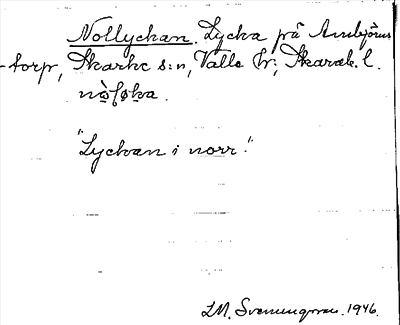 Nollyckan. Lycka på Ambjörns
-torp, Skarke s:n, Valle hr; Skarab. l.
"Lyckan i norr."
LM. Svenungsson. 1946.